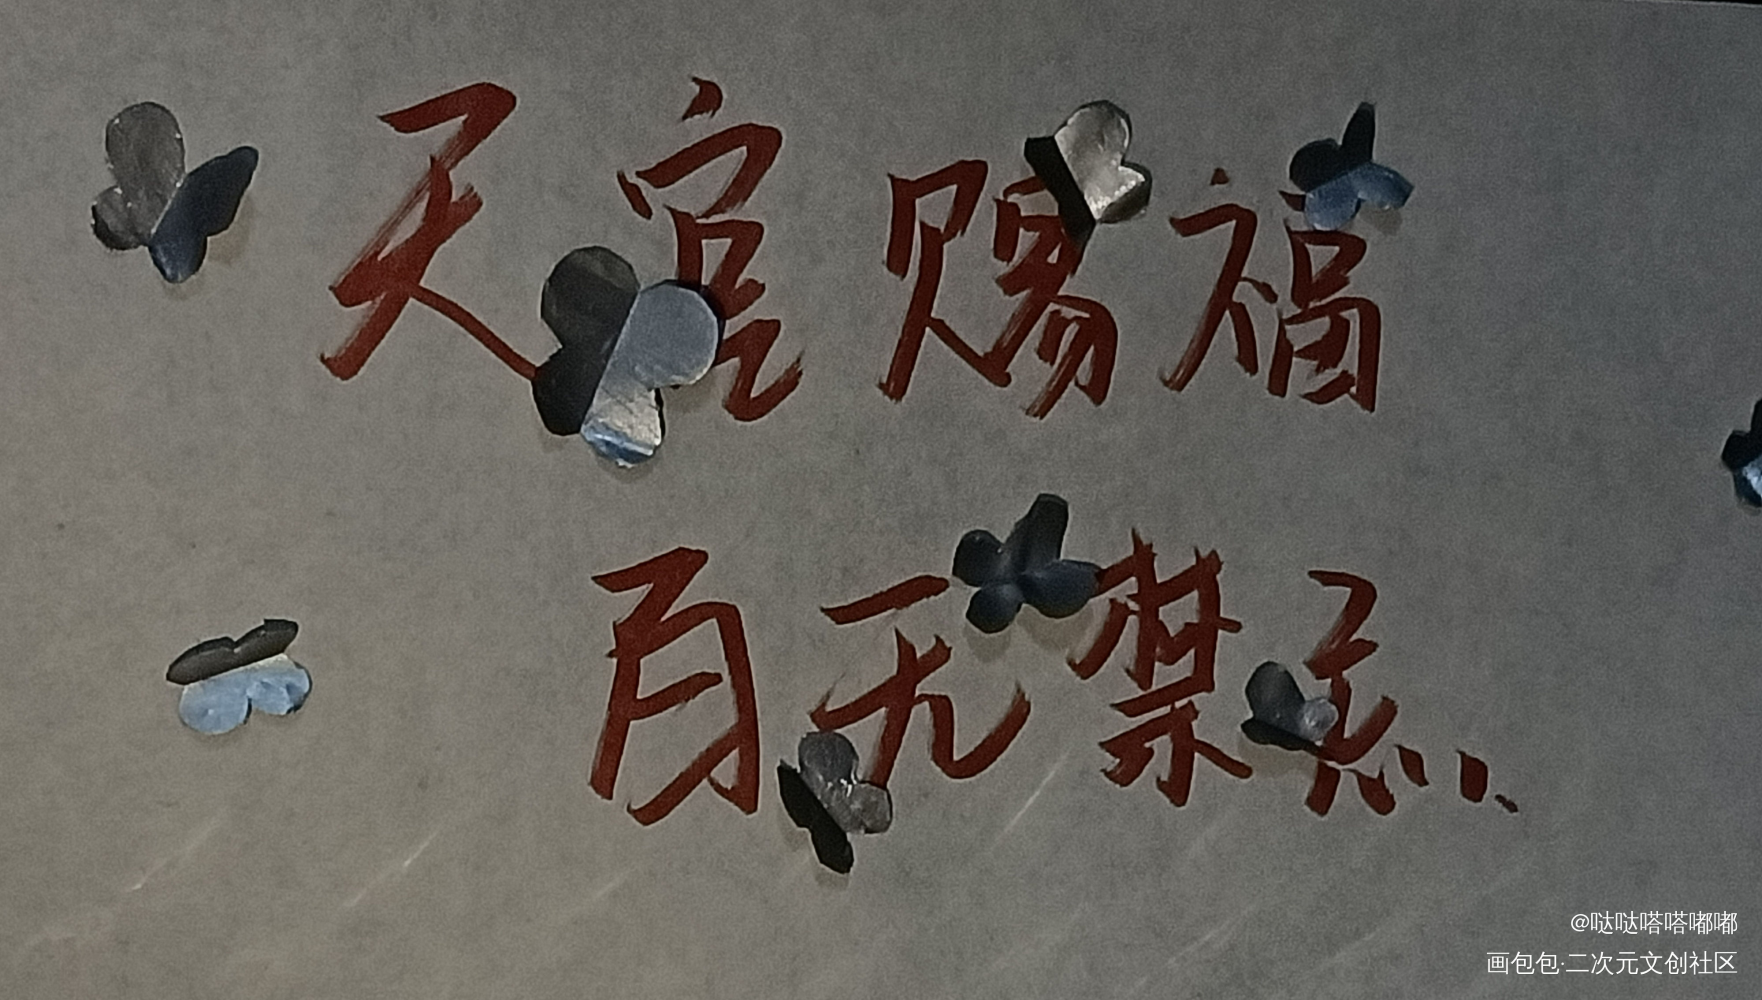 天官赐福
百无禁忌
@哒哒嗒嗒嘟嘟
画包包·二次元文创社区